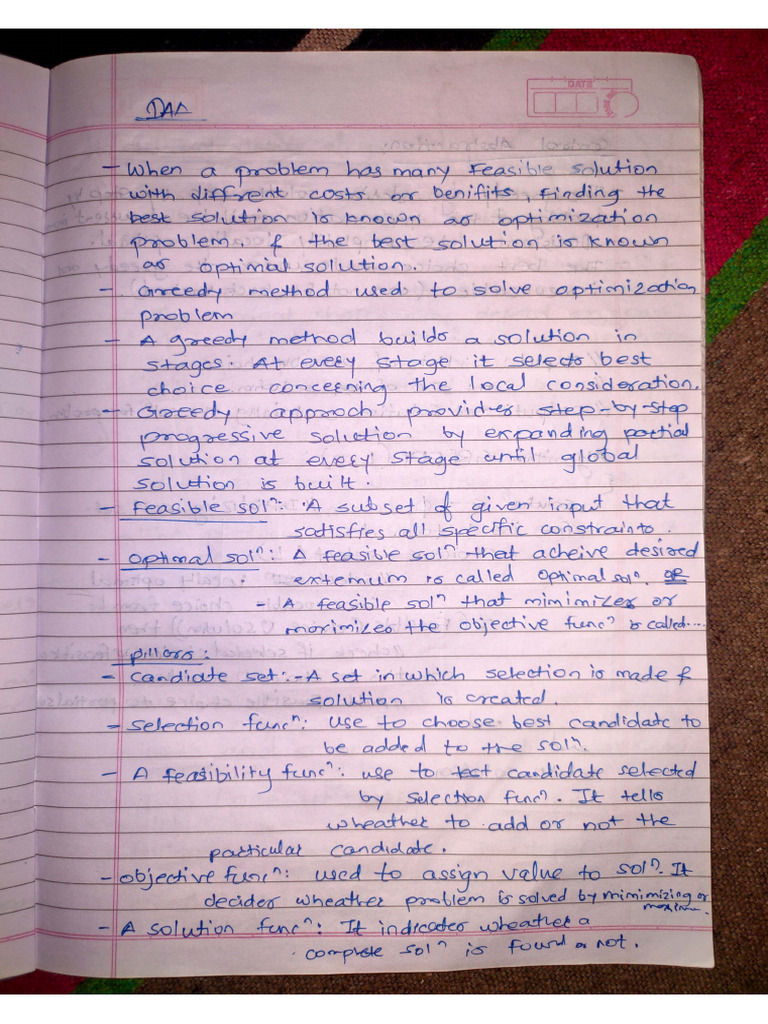 DATE
DAA
- When a problem has many feasible solution
with diffrent costs or benifits, finding the
best solution is known as optimization
problem & the best solution is known
as optimial solution.
- Greedy method used to solve optimization
problem
- A greedy method builds a solution in
stages. At every stage it selects best
choice concerning the local consideration.
- Greedy approch provides step-by-step
progressive solution by expanding partial
solution at every stage until global
solution is built.
- Feasible solⁿ: A subset of given input that
satisfies all specific constraints.
- Optimal solⁿ: A feasible solⁿ that acheive desired
extemum is called optimal solⁿ.
- A feasible solⁿ that mimimizes or
maximizes the objective funcⁿ is called....
pillars:
- Candiate set:- A set in which selection is made &
solution is created.
- Selection funcⁿ: Use to choose best candidate to
be added to the solⁿ.
- A feasibility funcⁿ: use to test candidate selected
by selection funcⁿ. It tells
wheather to add or not the
particular candidate.
- objective funcⁿ: used to assign value to solⁿ. It
decides wheather problem is solved by mimimizing or
- A solution funcⁿ: It indicates wheather a
complete solⁿ is found or not.